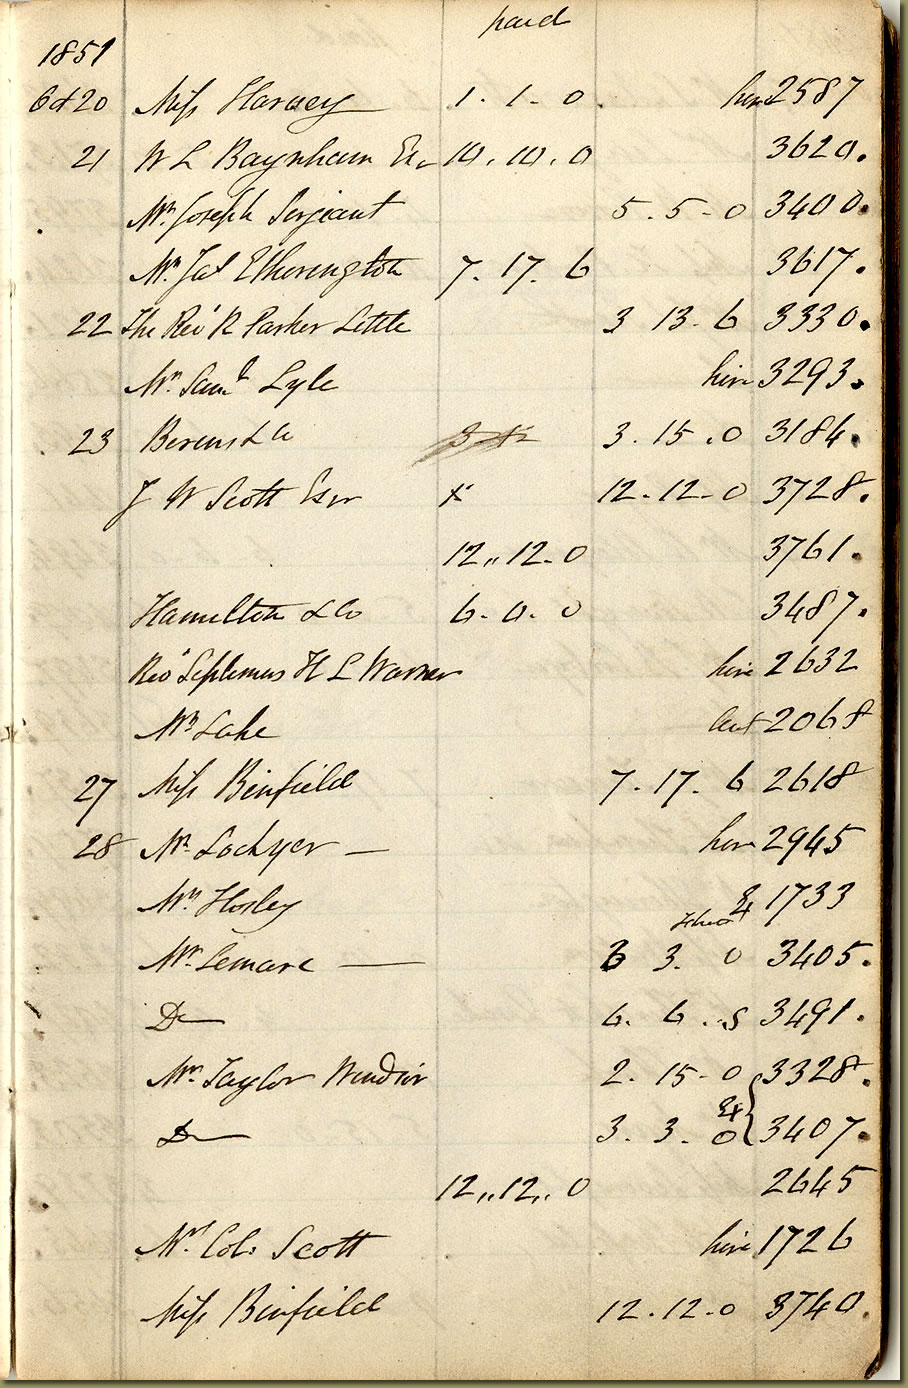 paid
1851
Oct 20 Miss Harvey 1. 1. 0 hire 2587
21 W L Baynham Esq 10. 10. 0 3620.
Mr Joseph Serjeant 5. 5. 0 3400.
Mr Jas Etherington 7. 17. 6 3617.
22 The Revd R Parker Little 3 13. 6 3330.
Mr Saml Lyle hire 3293.
23 & Co 3. 15. 0 3184.
J W Scott Esqr x 12. 12. 0 3728.
12,, 12. 0 3761.
Hamilton & Co 6. 0. 0 3487.
Revd Septimus H L Warner hire 2632
Mr Lake 2068
27 Miss Binfield 7. 17. 6 2618
28 Mr Lockyer — hire 2945
Mrs Horley Ex 1733
Mr Lemare — 3. 0 3405.
Do 6. 6. 3491.
Mr Taylor Windsor 2. 15. 0 3328.
Do 3. 3. 0 Ex 3407.
12,, 12,, 0 2645
Mrs Col. Scott hire 1726
Miss Binfield 12. 12. 0 3740.